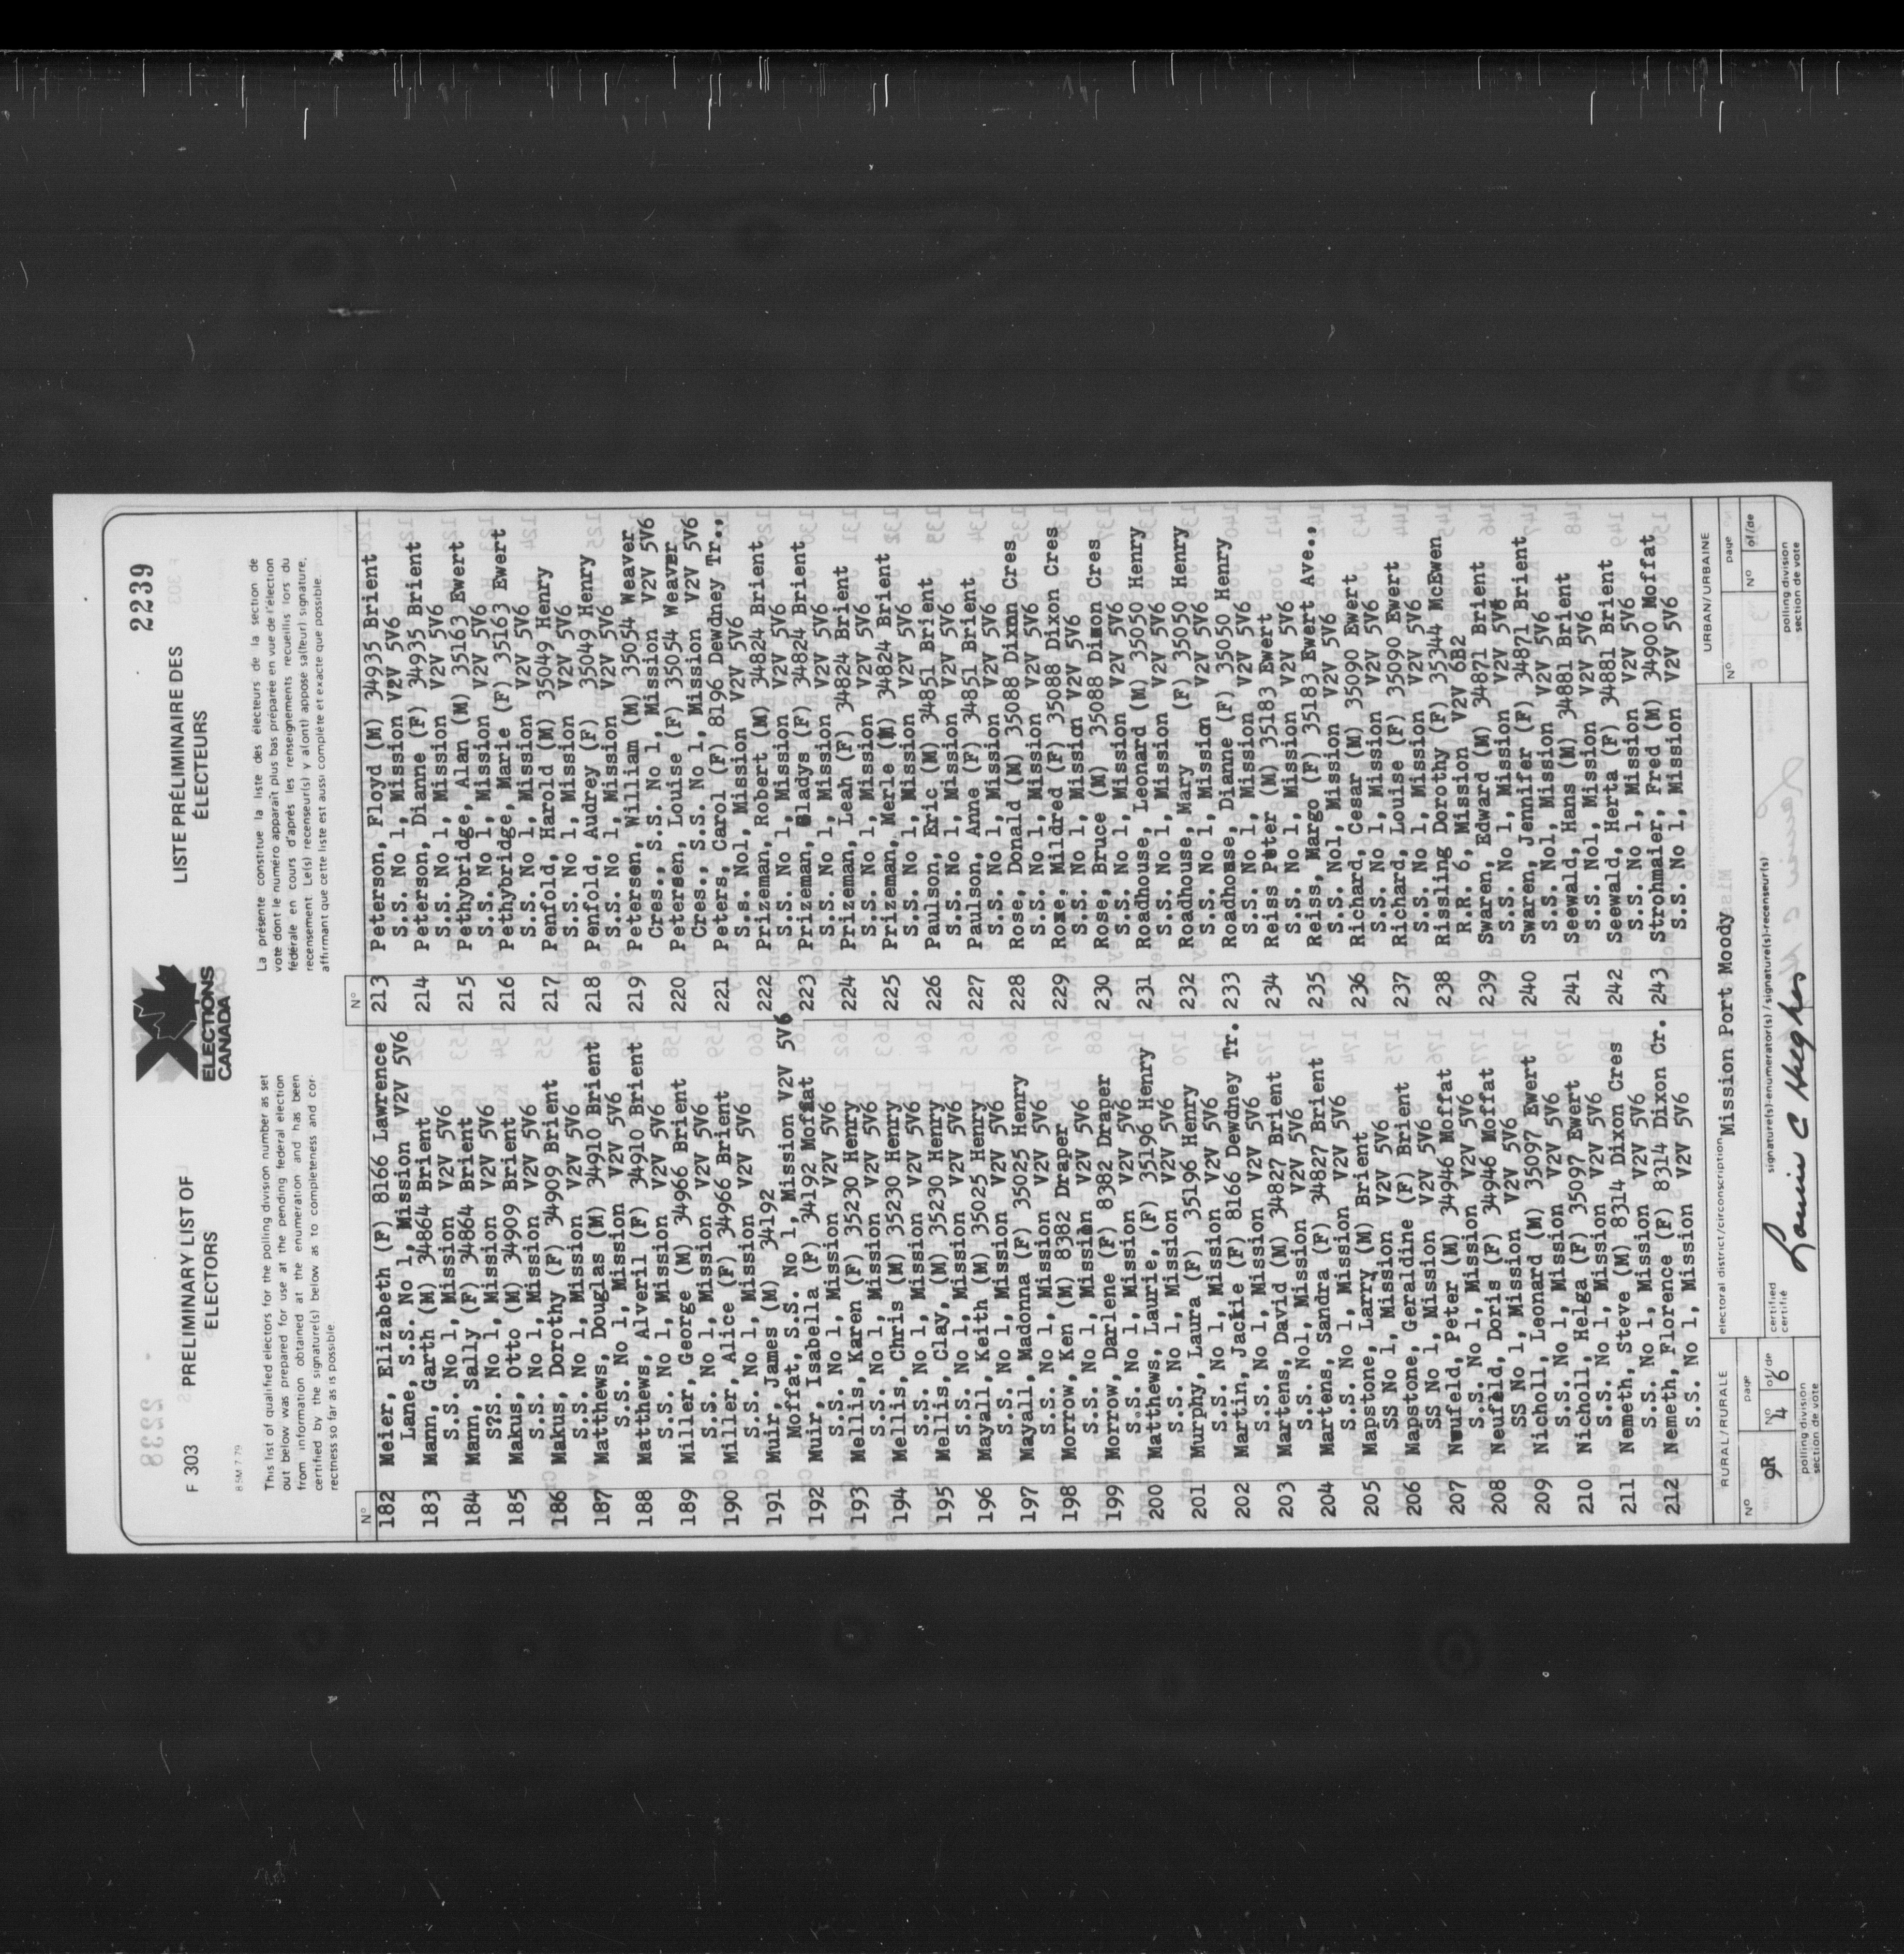 2239
F 303
PRELIMINARY LIST OF
ELECTORS
ELECTIONS
CANADA
LISTE PRÉLIMINAIRE DES
ÉLECTEURS
8 5M 7 79
This list of qualified electors for the polling division number as set
out below was prepared for use at the pending federal election
from information obtained at the enumeration and has been
certified by the signature(s) below as to completeness and cor-
rectness so far as is possible
La présente constitue la liste des électeurs de la section de
vote dont le numéro apparaît plus bas préparée en vue de l'élection
fédérale en cours d'après les renseignements recueillis lors du
recensement. Le(s) recenseur(s) y a(ont) apposé sa(leur) signature,
affirmant que cette liste est aussi complète et exacte que possible.
No
182 Meier, Elizabeth (F) 8166 Lawrence
Lane, S.S. No 1, Mission V2V 5V6
183 Mann, Garth (M) 34864 Brient
S.S. No 1, Mission V2V 5V6
184 Mann, Sally (F) 34864 Brient
S?S. No 1, Mission V2V 5V6
185 Makus, Otto (M) 34909 Brient
S.S. No 1, Mission V2V 5V6
186 Makus, Dorothy (F) 34909 Brient
S.S. No 1, Mission V2V 5V6
187 Matthews, Douglas (M) 34910 Brient
S.S. No 1, Mission V2V 5V6
188 Matthews, Alveril (F) 34910 Brient
S.S. No 1, Mission V2V 5V6
189 Miller, George (M) 34966 Brient
S.S. No 1, Mission V2V 5V6
190 Miller, Alice (F) 34966 Brient
S.S. No 1, Mission V2V 5V6
191 Muir, James (M) 34192
Moffat, S.S. No 1, Mission V2V 5V6
192 Muir, Isabella (F) 34192 Moffat
S.S. No 1, Mission V2V 5V6
193 Mellis, Karen (F) 35230 Henry
S.S. No 1, Mission V2V 5V6
194 Mellis, Chris (M) 35230 Henry
S.S. No 1, Mission V2V 5V6
195 Mellis, Clay, (M) 35230 Henry
S.S. No 1, Mission V2V 5V6
196 Mayall, Keith (M) 35025 Henry
S.S. No 1, Mission V2V 5V6
197 Mayall, Madonna (F) 35025 Henry
S.S. No 1, Mission V2V 5V6
198 Morrow, Ken (M) 8382 Draper
S.S. No 1, Mission V2V 5V6
199 Morrow, Darlene (F) 8382 Draper
S.S. No 1, Mission V2V 5V6
200 Matthews, Laurie, (F) 35196 Henry
S.S. No 1, Mission V2V 5V6
201 Murphy, Laura (F) 35196 Henry
S.S. No 1, Mission V2V 5V6
202 Martin, Jackie (F) 8166 Dewdney Tr.
S.S. No 1, Mission V2V 5V6
203 Martens, David (M) 34827 Brient
S.S. No1, Mission V2V 5V6
204 Martens, Sandra (F) 34827 Brient
S.S. No 1, Mission V2V 5V6
205 Mapstone, Larry (M) Brient
SS No 1, Mission V2V 5V6
206 Mapstone, Geraldine (F) Brient
SS No 1, Mission V2V 5V6
207 Neufeld, Peter (M) 34946 Moffat
S.S. No 1, Mission V2V 5V6
208 Neufeld, Doris (F) 34946 Moffat
SS No 1, Mission V2V 5V6
209 Nicholl, Leonard (M) 35097 Ewert
S.S. No 1, Mission V2V 5V6
210 Nicholl, Helga (F) 35097 Ewert
S.S. No 1, Mission V2V 5V6
211 Nemeth, Steve (M) 8314 Dixon Cres
S.S. No 1, Mission V2V 5V6
212 Nemeth, Florence (F) 8314 Dixon Cr.
S.S. No 1, Mission V2V 5V6
No
213 Peterson, Floyd (M) 34935 Brient
S.S. No 1, Mission V2V 5V6
214 Peterson, Dianne (F) 34935 Brient
S.S. No 1, Mission V2V 5V6
215 Pethybridge, Alan (M) 35163 Ewert
S.S. No 1, Mission V2V 5V6
216 Pethybridge, Marie (F) 35163 Ewert
S.S. No 1, Mission V2V 5V6
217 Penfold, Harold (M) 35049 Henry
S.S. No 1, Mission V2V 5V6
218 Penfold, Audrey (F) 35049 Henry
S.S. No 1, Mission V2V 5V6
219 Petersen, William (M) 35054 Weaver
Cres., S.S. No 1, Mission V2V 5V6
220 Petersen, Louise (F) 35054 Weaver
Cres., S.S. No 1, Mission V2V 5V6
221 Peters, Carol (F) 8196 Dewdney Tr.,
S.s. No1, Mission V2V 5V6
222 Prizeman, Robert (M) 34824 Brient
S.S. No 1, Mission V2V 5V6
223 Prizeman, Gladys (F) 34824 Brient
S.S. No 1, Mission V2V 5V6
224 Prizeman, Leah (F) 34824 Brient
S.S. No 1, Mission V2V 5V6
225 Prizeman, Merle (M) 34824 Brient
S.S. No 1, Mission V2V 5V6
226 Paulson, Eric (M) 34851 Brient
S.S. No 1, Mission V2V 5V6
227 Paulson, Anne (F) 34851 Brient
S.S. No 1, Mission V2V 5V6
228 Rose, Donald (M) 35088 Dixon Cres
S.S. No 1, Mission V2V 5V6
229 Rose, Mildred (F) 35088 Dixon Cres
S.S. No 1, Mission V2V 5V6
230 Rose, Bruce (M) 35088 Dixon Cres
S.S. No 1, Mission V2V 5V6
231 Roadhouse, Leonard (M) 35050 Henry
S.S. No 1, Mission V2V 5V6
232 Roadhouse, Mary (F) 35050 Henry
S.S. No 1, Mission V2V 5V6
233 Roadhouse, Dianne (F) 35050 Henry
S.S. No 1, Mission V2V 5V6
234 Reiss Peter (M) 35183 Ewert
S.S. No 1, Mission V2V 5V6
235 Reiss, Margo (F) 35183 Ewert Ave.,
S.S. No1, Mission V2V 5V6
236 Richard, Cesar (M) 35090 Ewert
S.S. No 1, Mission V2V 5V6
237 Richard, Louise (F) 35090 Ewert
S.S. No 1, Mission V2V 5V6
238 Rissling Dorothy (F) 35344 McEwen
R.R. 6, Mission V2V 6B2
239 Swaren, Edward (M) 34871 Brient
S.S. No 1, Mission V2V 5V6
240 Swaren, Jennifer (F) 34871 Brient
S.S. No1, Mission V2V 5V6
241 Seewald, Hans (M) 34881 Brient
S.S. No1, Mission V2V 5V6
242 Seewald, Herta (F) 34881 Brient
S.S. No 1, Mission V2V 5V6
243 Strohmaier, Fred (M) 34900 Moffat
S.S. No 1, Mission V2V 5V6
RURAL/RURALE
No
9R
page
No
4
of/de
6
polling division
section de vote
electoral district/circonscription
Mission Port Moody
certified
certifié
signature(s)-enumerator(s)/signature(s)-recenseur(s)
C Hughes
URBAN/URBAINE
No
page
No
of/de
polling division
section de vote